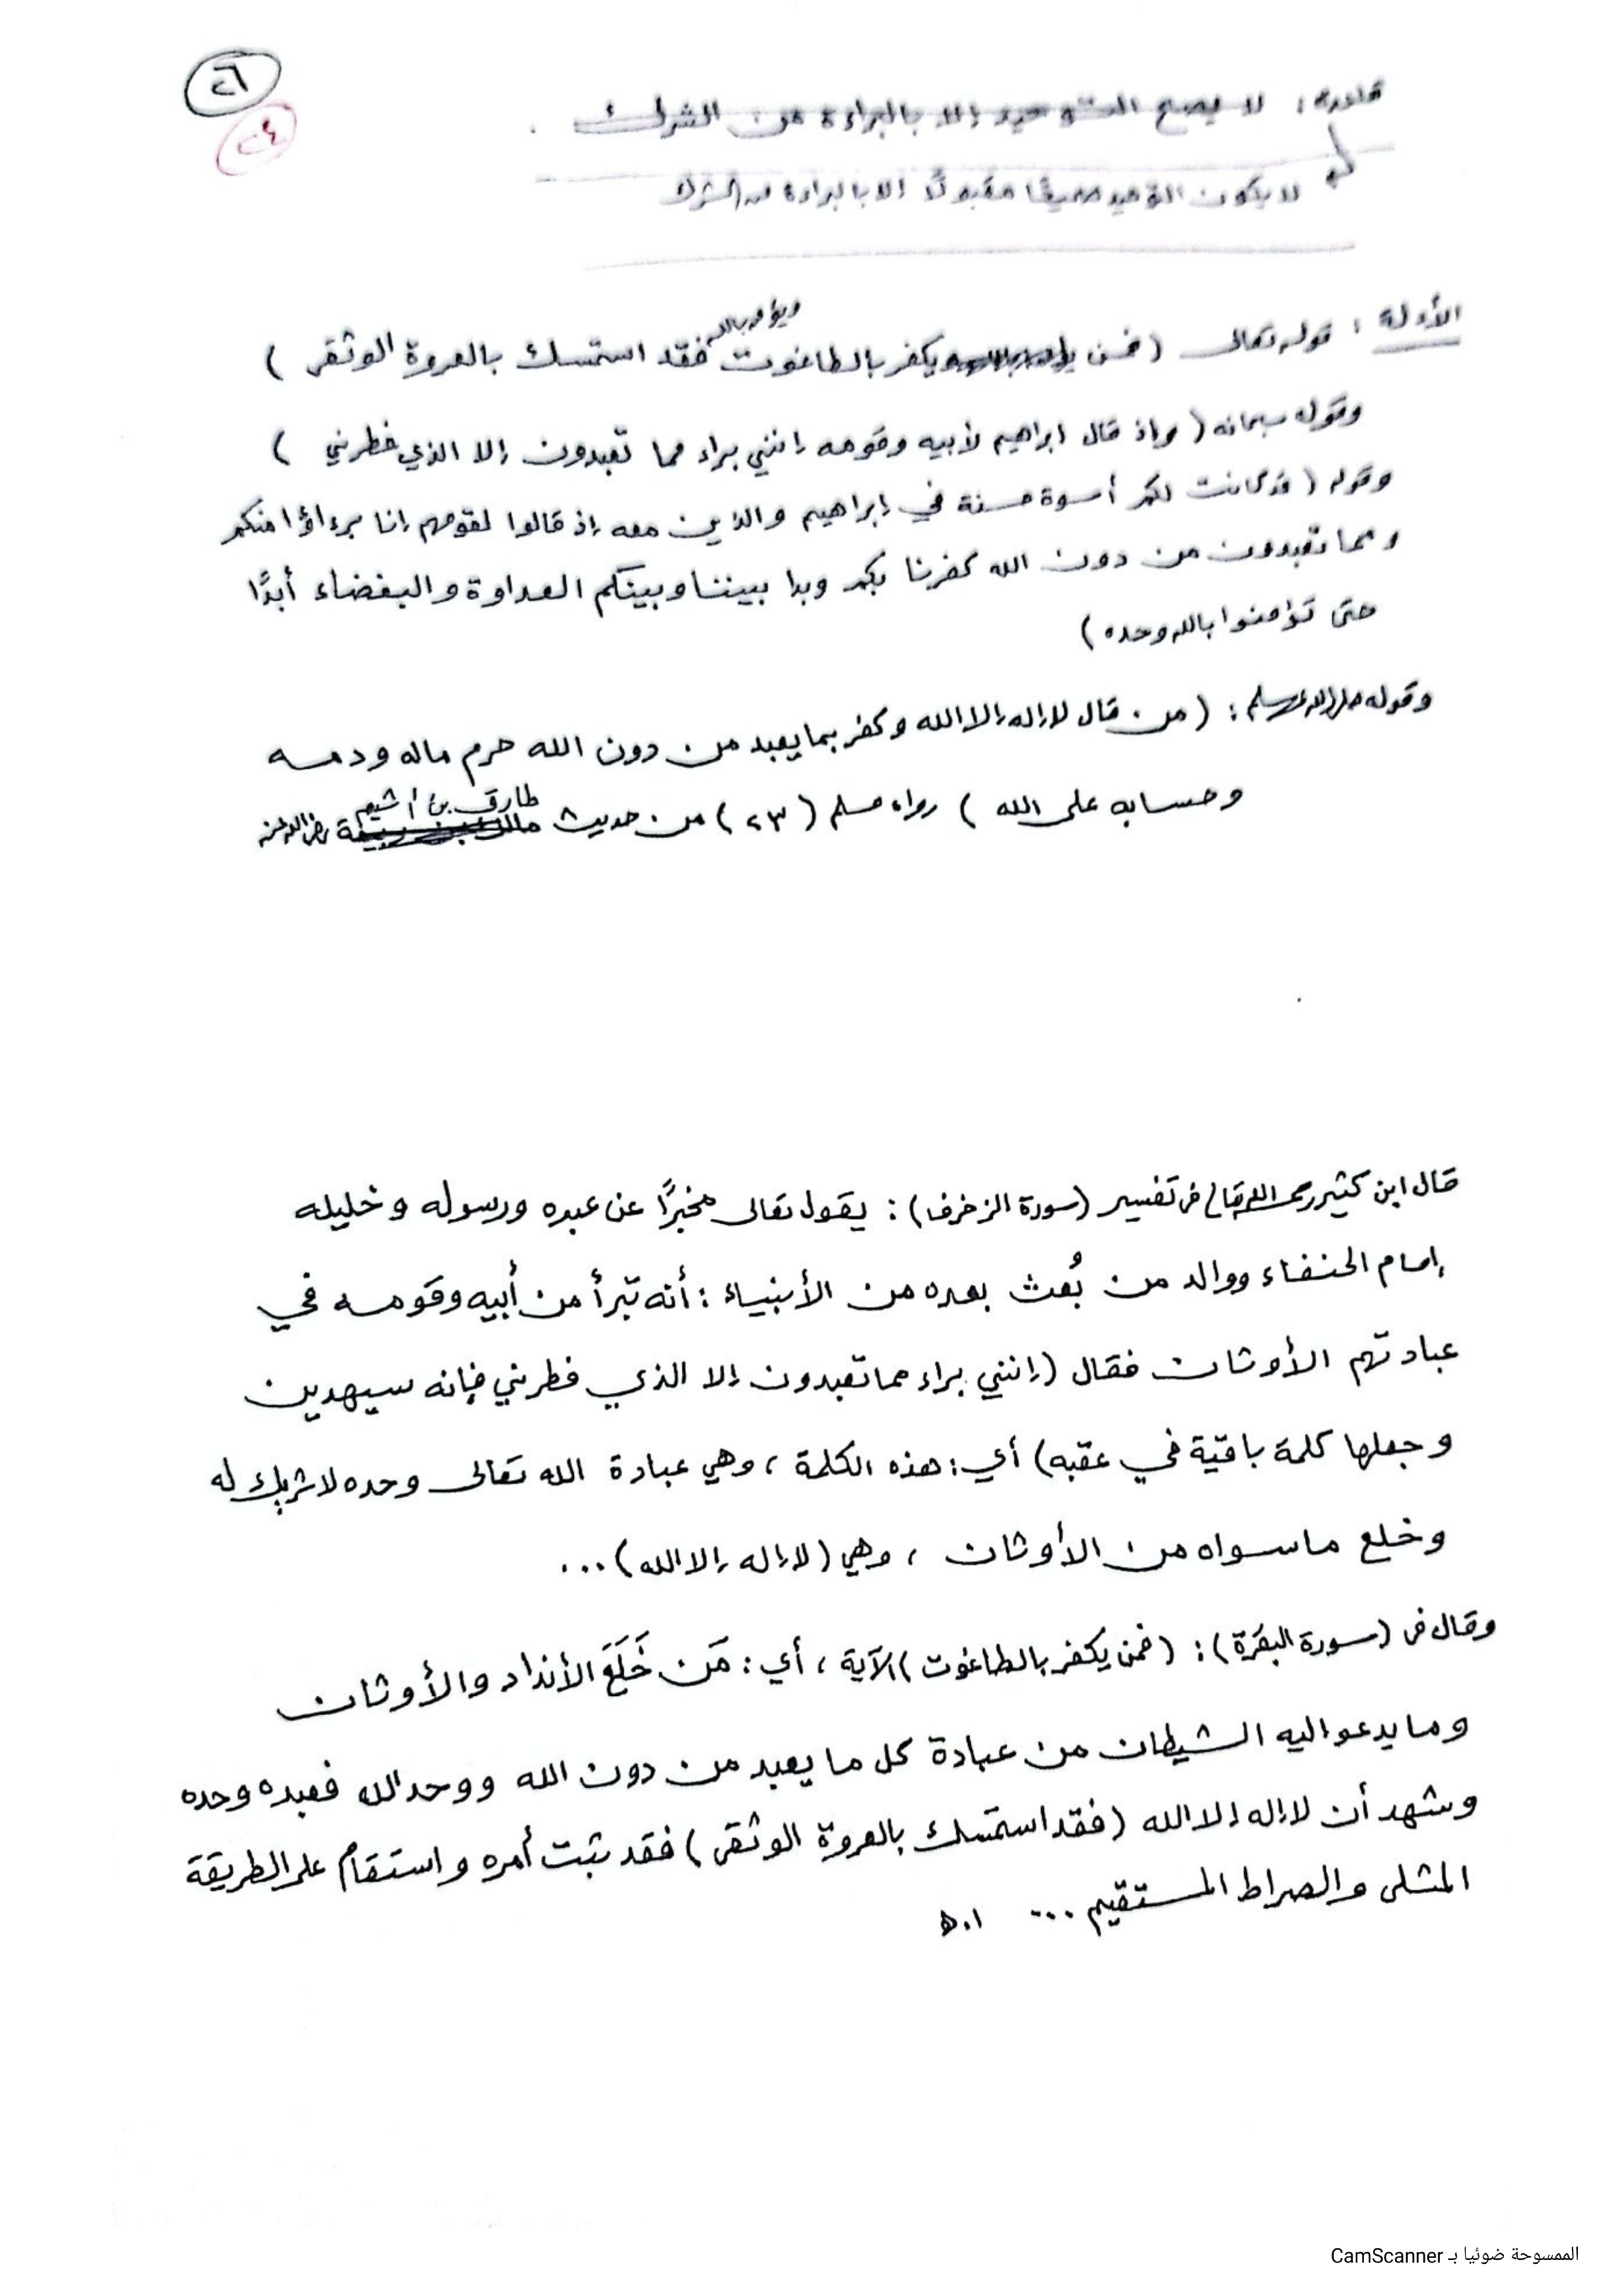 ٢٦
٢٤
قاعدة : لا يصح التوحيد إلا بالبراءة من الشرك .
لا يكون التوحيد صحيحًا مقبولًا إلا بالبراءة من الشرك
الأدلة : قوله تعالى ( فمن يكفر بالطاغوت ويؤمن بالله فقد استمسك بالعروة الوثقى )
وقوله سبحانه ( وإذ قال ابراهيم لأبيه وقومه إنني براء مما تعبدون إلا الذي فطرني )
وقوله ( قد كانت لكم أسوة حسنة في إبراهيم والذين معه إذ قالوا لقومهم إنا برءاؤا منكم
ومما تعبدون من دون الله كفرنا بكم وبدا بيننا وبينكم العداوة والبغضاء أبدًا
حتى تؤمنوا بالله وحده )
وقوله صلى الله عليه وسلم : ( من قال لا إله إلا الله وكفر بما يعبد من دون الله حرم ماله ودمه
وحسابه على الله ) رواه مسلم ( ٢٣ ) من حديث طارق بن أشيم رضي الله عنه
قال ابن كثير رحمه الله تعالى في تفسير (سورة الزخرف) : يقول تعالى مخبرًا عن عبده ورسوله وخليله
إمام الحنفاء ووالد من بُعث بعده من الأنبياء : أنه تبرأ من أبيه وقومه في
عبادتهم الأوثان فقال (إنني براء مما تعبدون إلا الذي فطرني فإنه سيهدين
وجعلها كلمة باقية في عقبه) أي : هذه الكلمة ، وهي عبادة الله تعالى وحده لا شريك له
وخلع ما سواه من الأوثان ، وهي (لا إله إلا الله) ...
وقال في (سورة البقرة) : (فمن يكفر بالطاغوت) الآية ، أي : مَن خَلَعَ الأنداد والأوثان
وما يدعو اليه الشيطان من عبادة كل ما يعبد من دون الله ووحد الله فعبده وحده
وشهد أن لا إله إلا الله (فقد استمسك بالعروة الوثقى) فقد ثبت أمره واستقام على الطريقة
المثلى والصراط المستقيم ... ا.ه
الممسوحة ضوئيا بـ CamScanner